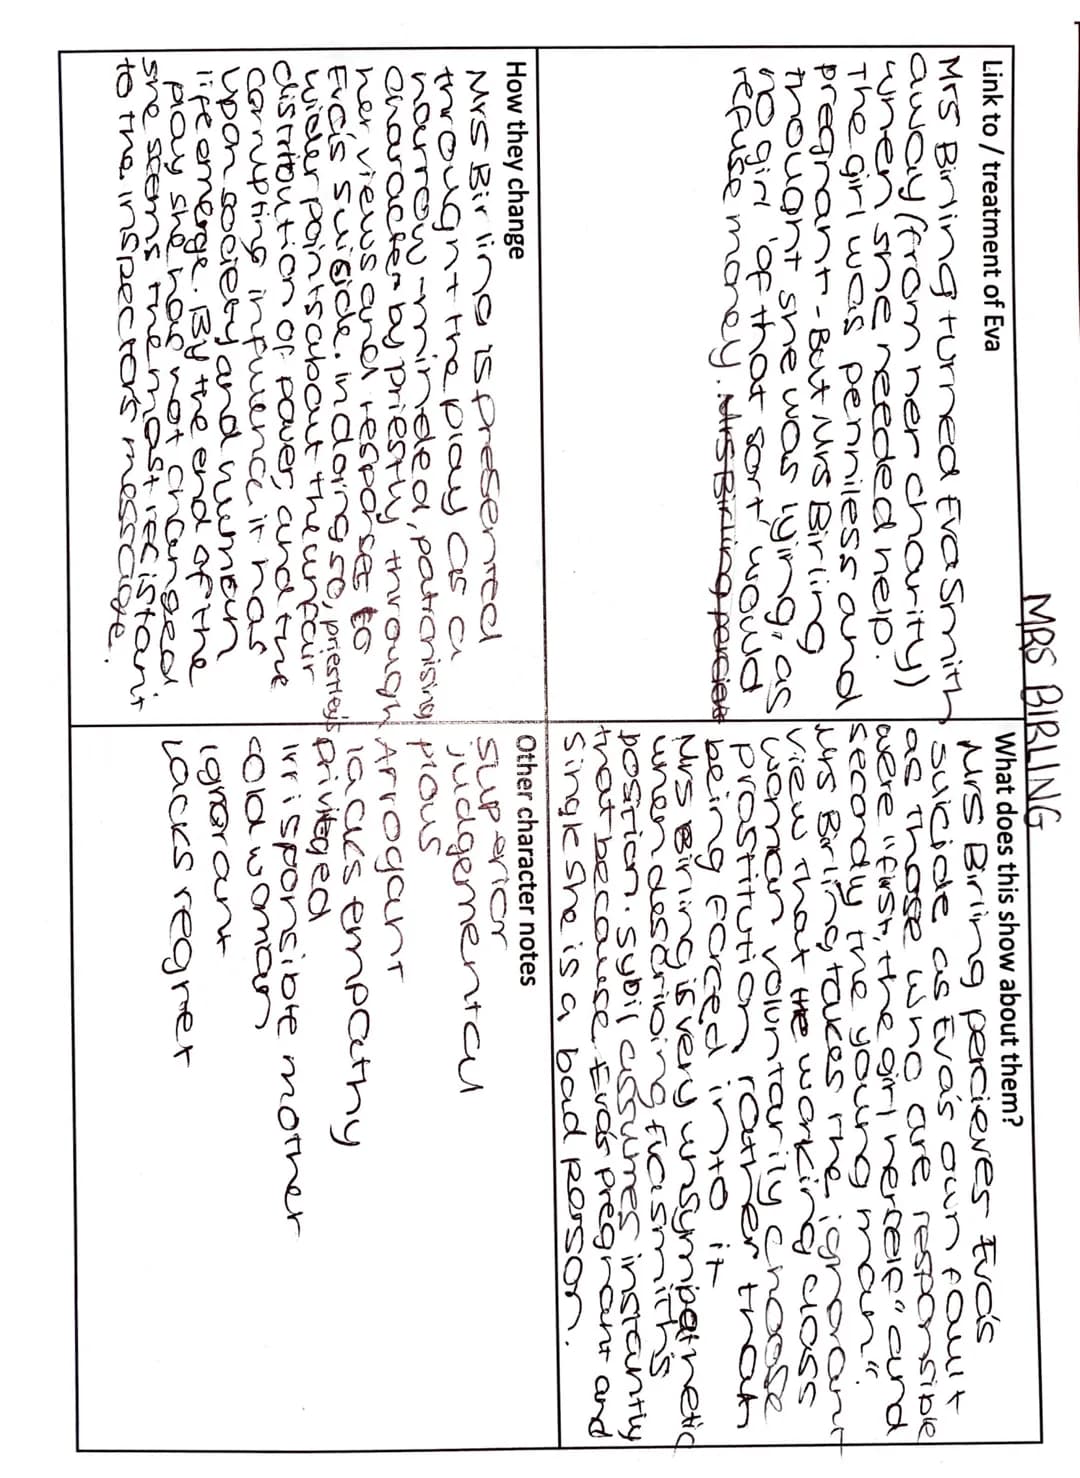 MRS BIRLING
Link to / treatment of Eva
Mrs Birling turned Eva Smith
away (from her charity))
when she needed help.
The girl was penniless and
pregnant - But Mrs Birling
thought she was lying, as
no girl 'of that sort' would
refuse money. Mrs Birling percieve
What does this show about them?
Mrs Birling percieves Eva's
suicide as Eva's own fault
as those who are responsible
were "first, the girl herself" and
secondly the young man".
Mrs Birling takes the ignorant
view that the working class
woman voluntarily choose
prostitution rather than
being forced into it
Mrs Birling is very unsympathetic
when describing Eva Smith's
position. Sybil assumes instantly
that because Eva's pregnant and
single she is a bad person.
How they change
Mrs Birling is presented
throught the play as a
narrow-minded, patronising
character by priestly through
her views and resposes to
Eva's suicide. in doing so, priestley's
wider points about the unfair
distribution of power, and the
corrupting influence it has
upon society and human
life emerge. By the end of the
play she has not changed
she seems the most recistant
to the inspectors message.
Other character notes
superior
judgemental
pious
Arrogant
lacks empathy
privileged
irrisponsible mother
cold woman
ignorant
Lacks regret